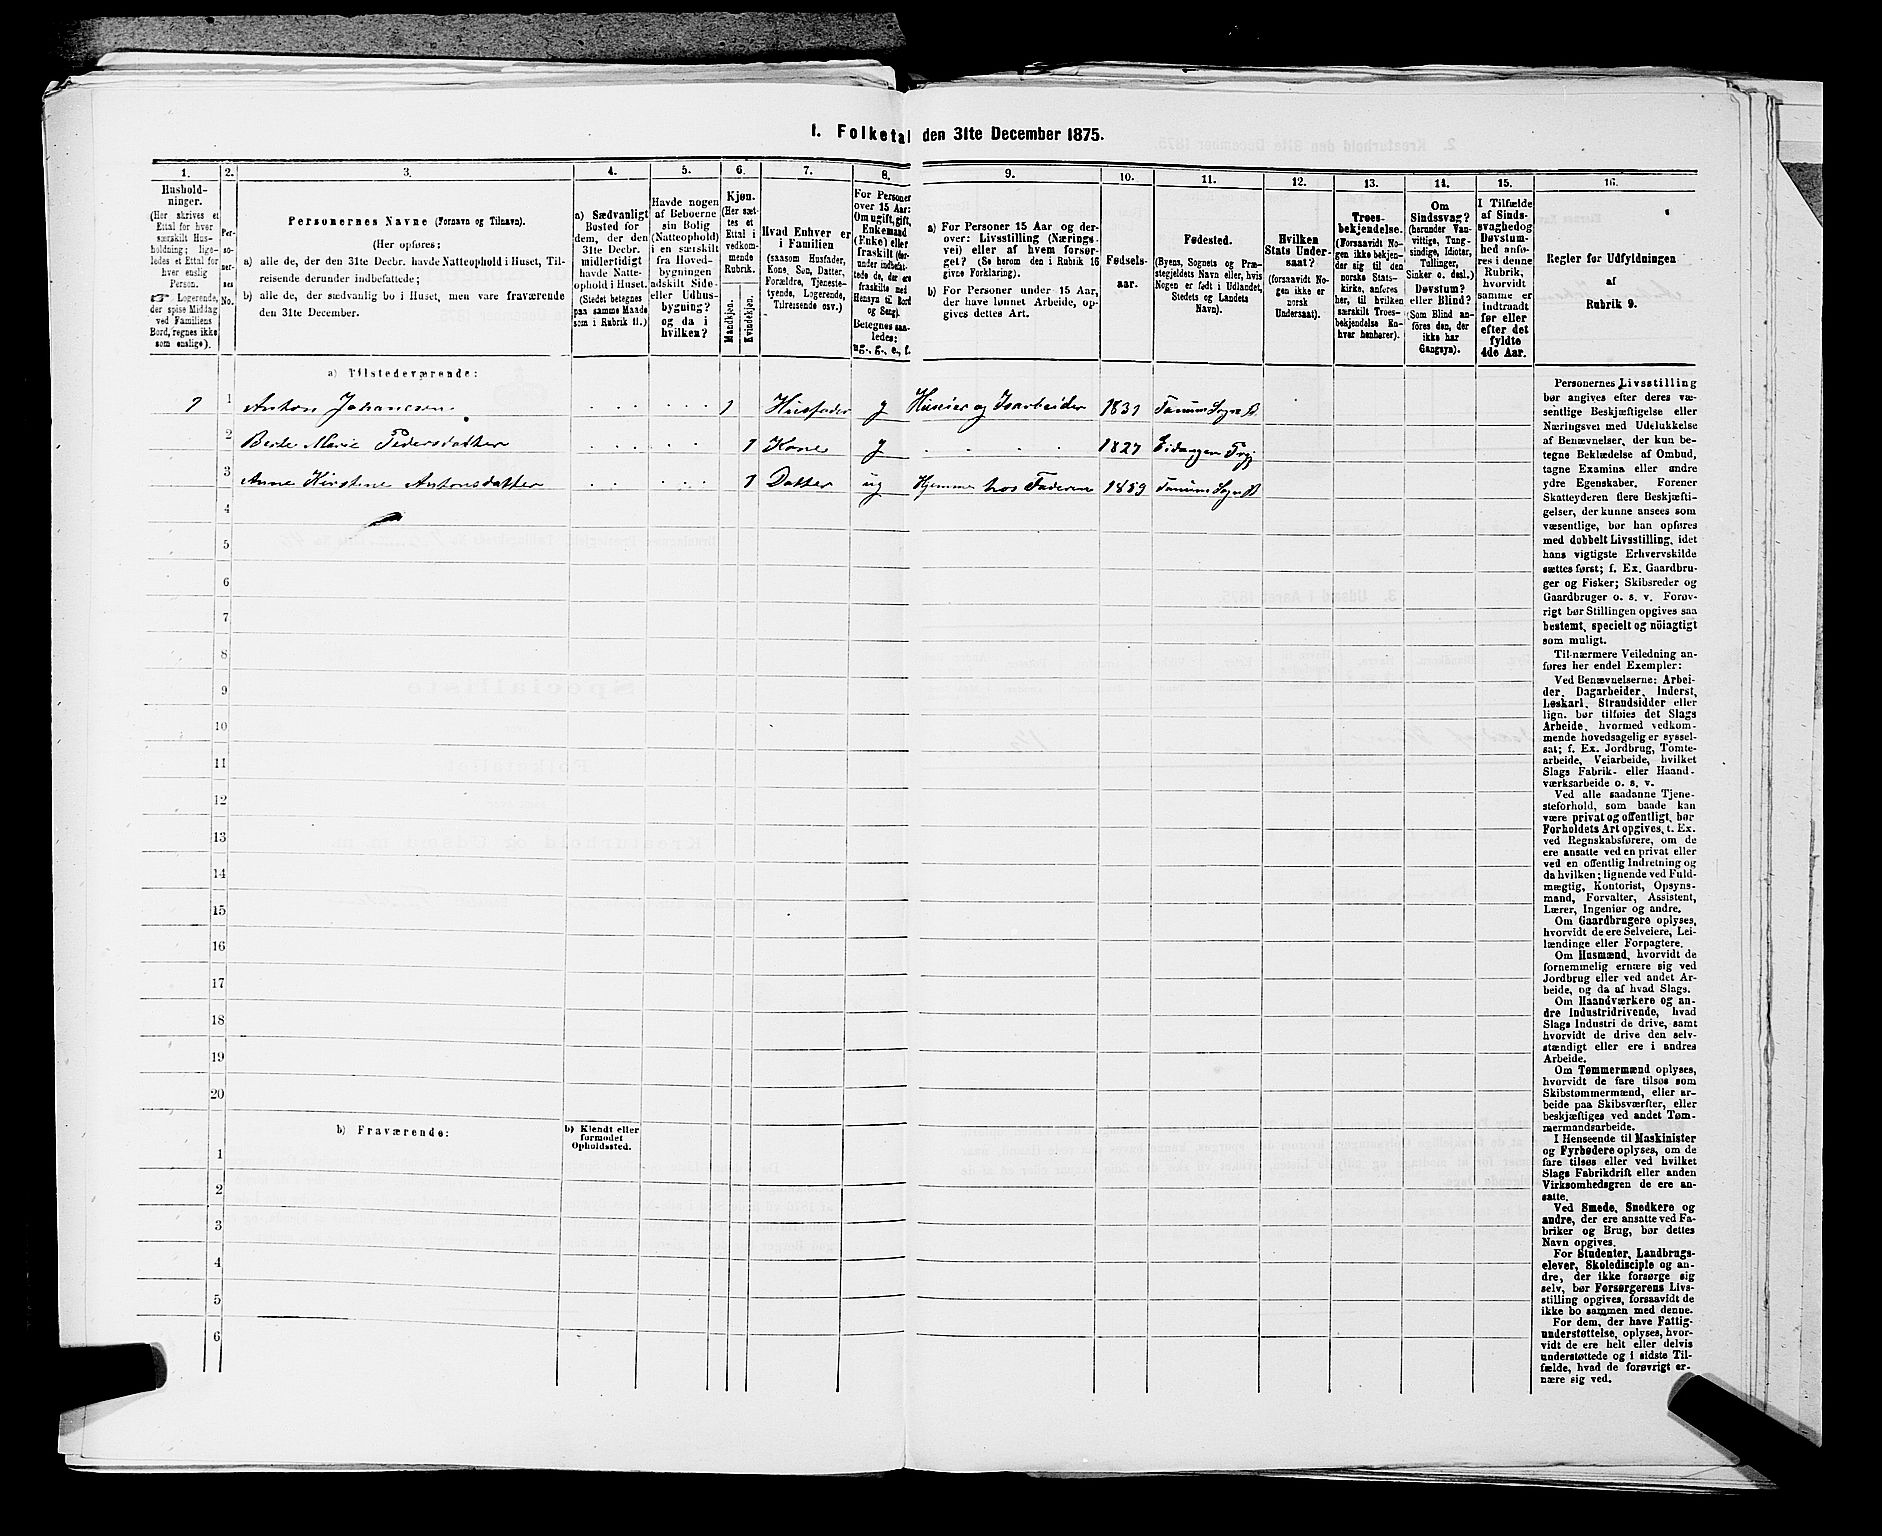 1. Folketal den 31te December 1875.
1. 2. 3. 4. 5. 6. 7. 8. 9. 10. 11. 12. 13. 14. 15. 16.
Hushold-
ninger.
(Her skrives et
Ettal for hver
særskilt Hus-
holdning; lige-
ledes et Ettal for
hver enslig
Person.
☞ Logerende,
der spise Middag
ved Familiens
Bord, regnes ikke
som enslige).
Per-
so-
ner-
nes
No.
Personernes Navne (Fornavn og Tilnavn).
(Her opføres;
a) alle de, der den 31te Decbr. havde Natteophold i Huset, Til-
reisende derunder indbefattede;
b) alle de, der sædvanlig bo i Huset, men vare fraværende
den 31te December.
a) Sædvanligt
Bosted for
dem, der den
31te Decbr.
midlertidigt
havde Natte-
ophold i Huset.
(Stedet betegnes
paa samme Maade
som i Rubrik 11.)
Havde nogen
af Beboerne
sin Bolig
(Natteophold)
i en særskilt
fra Hoved-
bygningen
adskilt Side-
eller Udhus-
bygning?
og da i
hvilken?
Kjøn.
(Her sæt-
tes et
Ettal i
vedkom-
mende
Rubrik.
Mandkjøn.
Kvindekjøn.
Hvad Enhver er
i Familien
(saasom Husfader,
Kone, Søn, Datter,
Forældre, Tjeneste-
tyende, Logerende,
Tilreisende osv.)
For Personer
over 15 Aar:
Om ugift, gift,
Enkemand
(Enke) eller
fraskilt (her-
under indbefat-
tede de, der ere
fraskilte med
Hensyn til Bord
og Seng).
Betegnes saa-
ledes:
ug., g., e., f.
a) For Personer 15 Aar og der-
over: Livsstilling (Nærings-
vei) eller af hvem forsør-
get? (Se herom den i Rubrik 16
givne Forklaring).
b) For Personer under 15 Aar,
der have lønnet Arbeide, op-
gives dettes Art.
Fødsels-
aar.
Fødested.
(Byens, Sognets og Præ-
stegjeldets Navn eller, hvis
Nogen er født i Udlandet,
Stedets og Landets
Navn).
Hvilken
Stats Under-
saat?
(forsaavidt No-
gen ikke er
norsk
Undersaat).
Troes-
bekjendelse.
(Forsaavidt No-
gen ikke bekjen-
der sig til den
norske Stats-
kirke, anføres
her, til hvilken
særskilt Troes-
bekjendelse En-
hver henhører).
Om
Sindssvag?
(herunder Van-
vittige, Tung-
sindige, Idiotar,
Tullinger,
Sinker o. desl.)
Døvstum?
eller Blind?
(Som Blind an-
føres den, der
ikke har
Gangsyn).
I Tilfælde
af Sinds-
svaghed og
Døvstum-
hed anfø-
res i denne
Rubrik,
hvorvidt
samme er
indtraadt
før eller
efter det
fyldte
4de Aar.
Regler før Udfyldningen
af
Rubrik 9.
a) Tilstedeværende:
1 1 Anton Johannesen 1 Husfader g Huseier og Isarbeider 1831 Tanum Sogn
2 Berte Marie Pedersdatter 1 Kone g 1827 Eidanger
3 Anne Kirstine Antonsdatter 1 Datter ug Hjemme hos Faderen 1859 Tanum Sogn
4
5
6
7
8
9
10
11
12
13
14
15
16
17
18
19
20
b) Fraværende:
b) Kjendt eller
formodet
Opholdssted.
1
2
3
4
5
6
Personernes Livsstilling
bør angives efter deres væ-
sentlige Beskjæftigelse eller
Næringsvei med Udelukkelse
af Benævnelser, der kun be-
tegne Beklædelse af Ombud,
tagne Examina eller andre
ydre Egenskaber. Forener
Skatteyderen flere Beskjæfti-
gelser, der kunne ansees som
væsentlige, bør han opføres
med dobbelt Livsstilling, idet
hans vigtigste Erhvervskilde
sættes først; f. Ex. Gaardbru-
ger og Fisker; Skibsreder og
Gaardbruger o. s. v. Forøv-
rigt bør Stillingen opgives saa
bestemt, specielt og nöiagtigt
som muligt.
Til nærmere Veiledning an-
føres her endel Exempler:
Ved Benævnelserne: Arbei-
der, Dagarbeider, Inderst,
Løskarl, Strandsidder eller
lign. bør tilføies det Slags
Arbeide, hvormed vedkom-
mende hovedsagelig er syssel-
sat; f. Ex. Jordbrug, Tomte-
arbeide, Veiarbeide, hvilket
Slags Fabrik- eller Haand-
værksarbeide o. s. v.
Ved alle saadanne Tjene-
steforhold, som baade kan
være privat og offentligt, bør
Forholdets Art opgives, t. Ex.
ved Regnskabsførere, om de
ere ansatte ved en privat eller
ved en offentlig Indretning og
da hvilken; lignende ved Fuld-
mægtig, Kontorist, Opsyns-
mand, Forvalter, Assistent,
Lærer, Ingeniør og andre.
Om Gaardbrugere oplyses,
hvorvidt de ere Selveiere, Lei-
lændinge eller Forpagtere.
Om Husmænd, hvorvidt de
fornemmelig ernære sig ved
Jordbrug eller ved andet Ar-
beide, og da af hvad Slags.
Om Haandværkere og an-
dre Industridrivende, hvad
Slags Industri de drive, samt
hvorvidt de drive den selv-
stændigt eller ere i andres
Arbeide.
Om Tømmermænd oplyses,
hvorvidt de fare tilsøs som
Skibstømmermænd, eller ar-
beide paa Skibsværfter, eller
beskjæftiges ved andet Tøm-
mermandsarbeide.
I Henseende til Maskinister
og Fyrbødere oplyses, om de
fare tilsøs eller ved hvilket
Slags Fabrikdrift eller anden
Virksomhedsgren de ere an-
satte.
Ved Smede, Snedkere og
andre, der ere ansatte ved Fa-
briker og Brug, bør dettes
Navn opgives.
For Studenter, Landbrugs-
elever, Skoledisciple og an-
dre, der ikke forsørge sig
selv, bør Forsørgerens Livs-
stilling opgives, forsaavidt de
ikke bo sammen med denne.
For dem, der have Fattig-
understøttelse, oplyses, hvor-
vidt de ere helt eller delvis
understøttede og i sidste Til-
fælde, hvad de forøvrigt er-
nære sig ved.